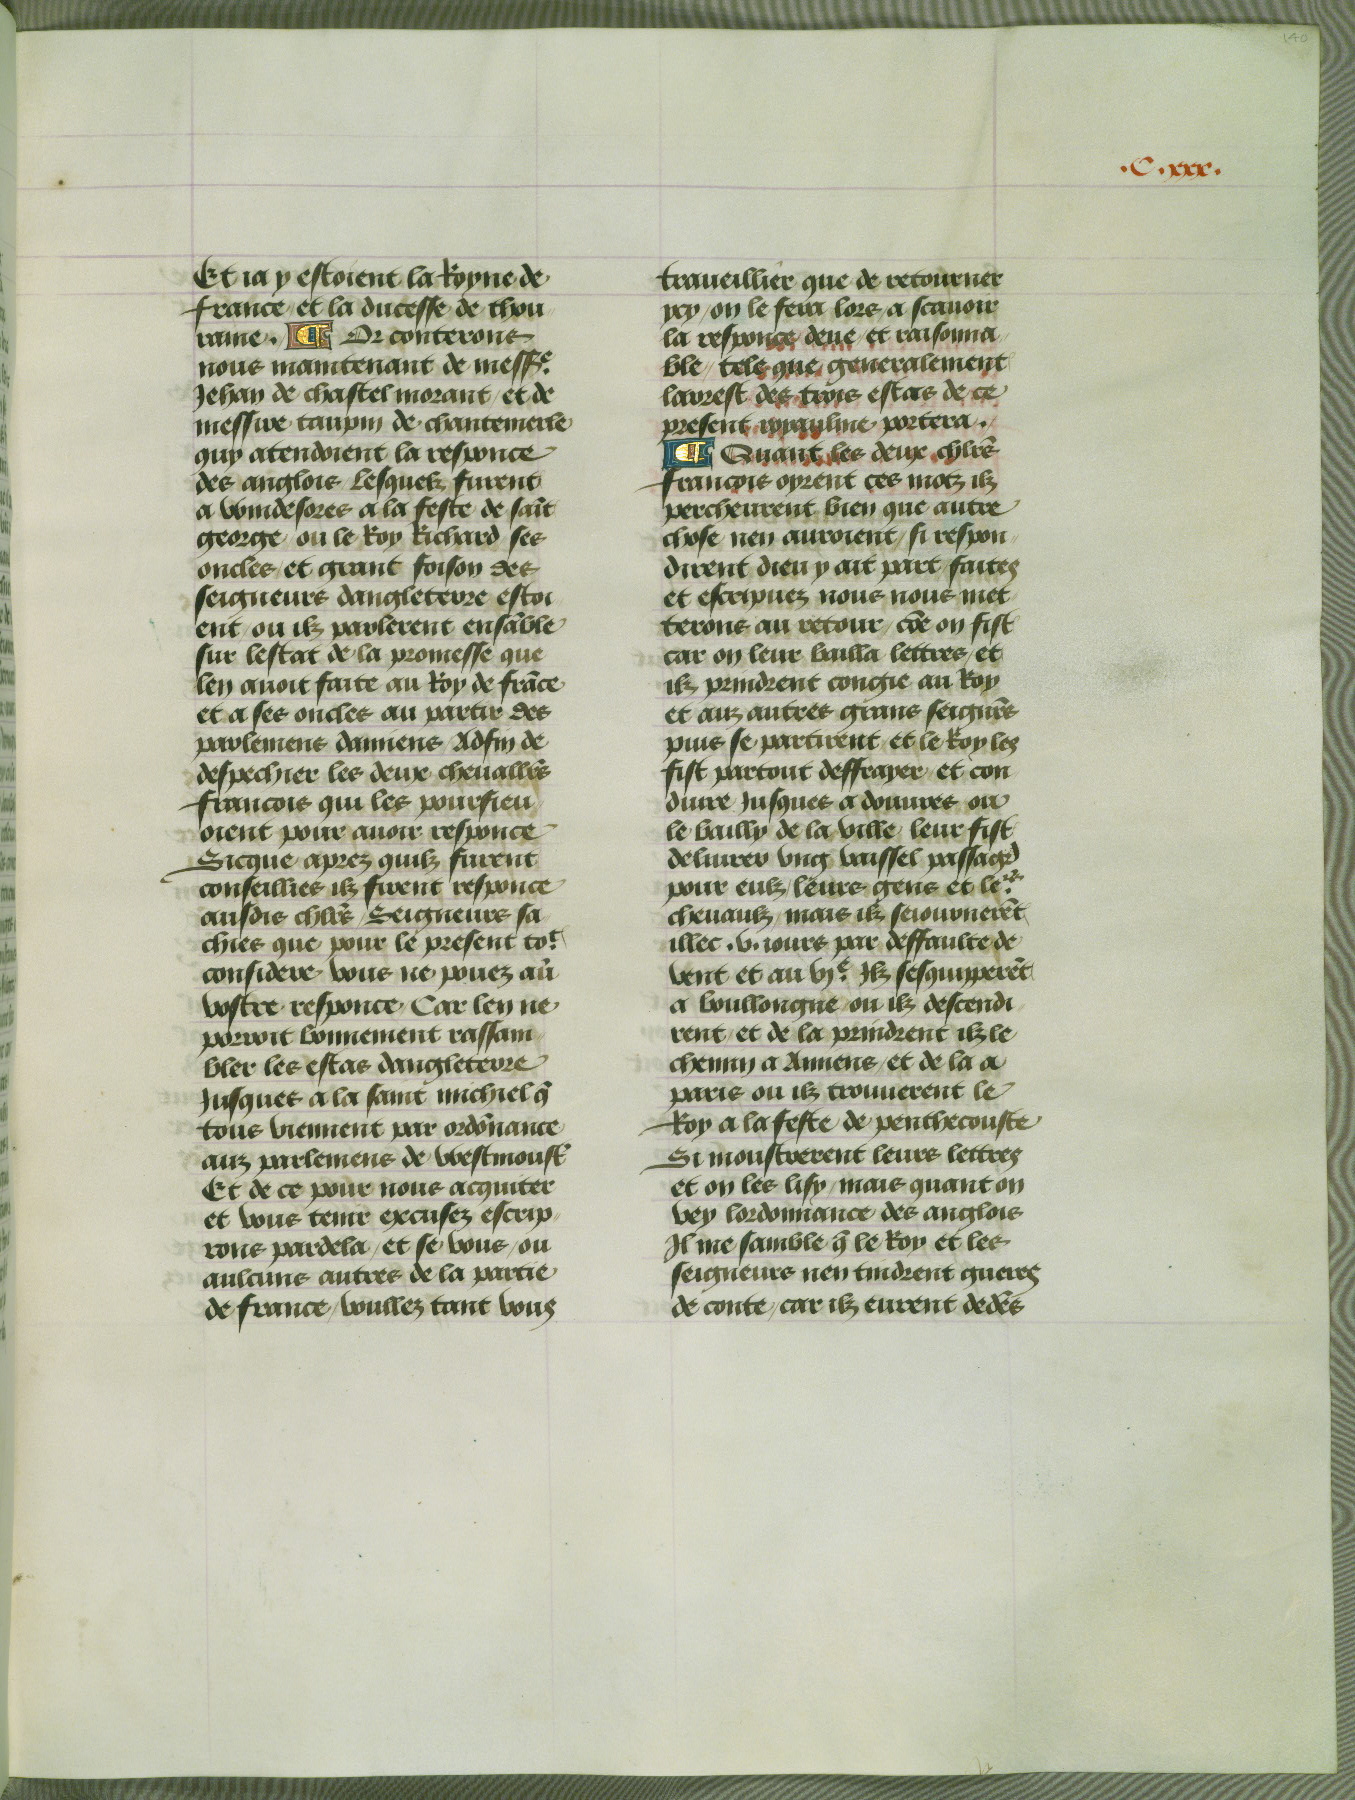 140
.C.xxx.
Et ia y estoient la Royne de
france et la ducesse de thou
raine. Or conterons
nous maintenant de messre
Jehan de chastel morant / et de
messire taupin de chantemerle
quy atendoient la responce
des anglois Lesquelz furent
a windesores a la feste de sait
george / ou le Roy Richard ses
oncles / et grant foison des
seigneurs dangleterre estoi
ent / ou ilz parlerent ensable
sur lestat de la promesse que
len auoit faite au Roy de frace
et a ses oncles au partir des
parlemens damiens Adfin de
despechier les deux cheualles
francois qui les poursieu
oient pour auoir responce
Sicque aprez quilz furent
conseillies ilz firent responce
ausdis chlrs / Seigneurs sa
chies que pour le present tot
considere / vous ne pouez au
vostre responce Car len ne
porroit bonnement rassam
bler les estas dangleterre
Jusques a la saint michiel q
tous viennent par ordonance
auz parlemens de westmoust
Et de ce pour nous acquiter
et vous tenir excusez escrip
rons pardela / et se vous / ou
aulcuns autres de la partie
de france / voullez tant vous
traueillier que de retourner
ycy / on le fera lors a scauoir
la responce deue et raisonna
ble / tele que generalement
larrest des trois estas de ce
present royaulme portera.
Quant les deux chlrs
francois oyrent ces motz ilz
percheurent bien que autre
chose nen auroient / si respon
dirent dieu y ait part faites
et escripuez nous nous met
terons au retour / coe on fist
car on leur bailla lettres / et
ilz prindrent congie au Roy
et auz autres grans seignrs
puis se partirent et le Roy les
fist partout deffrayer / et con
duire Jusques a douures ou
le bailly de la ville leur fist
deliurer vng vaissel passagr
pour eulz / leurs gens et lers
cheuaulz / mais ilz seiourneret
illec .v. iours par deffaulte de
vent et au vje Ilz sesquipperet
a boullongne ou ilz descendi
rent / et de la prindrent ilz le
chemin a Amiens / et de la a
paris ou ilz trouuerent le
Roy a la feste de penthecouste
Si moustrerent leurs lettres
et on les lisy / mais quant on
vey lordonnance des anglois
Il me samble q le Roy et les
seigneurs nen tindrent gueres
de conte / car ilz eurent dedes